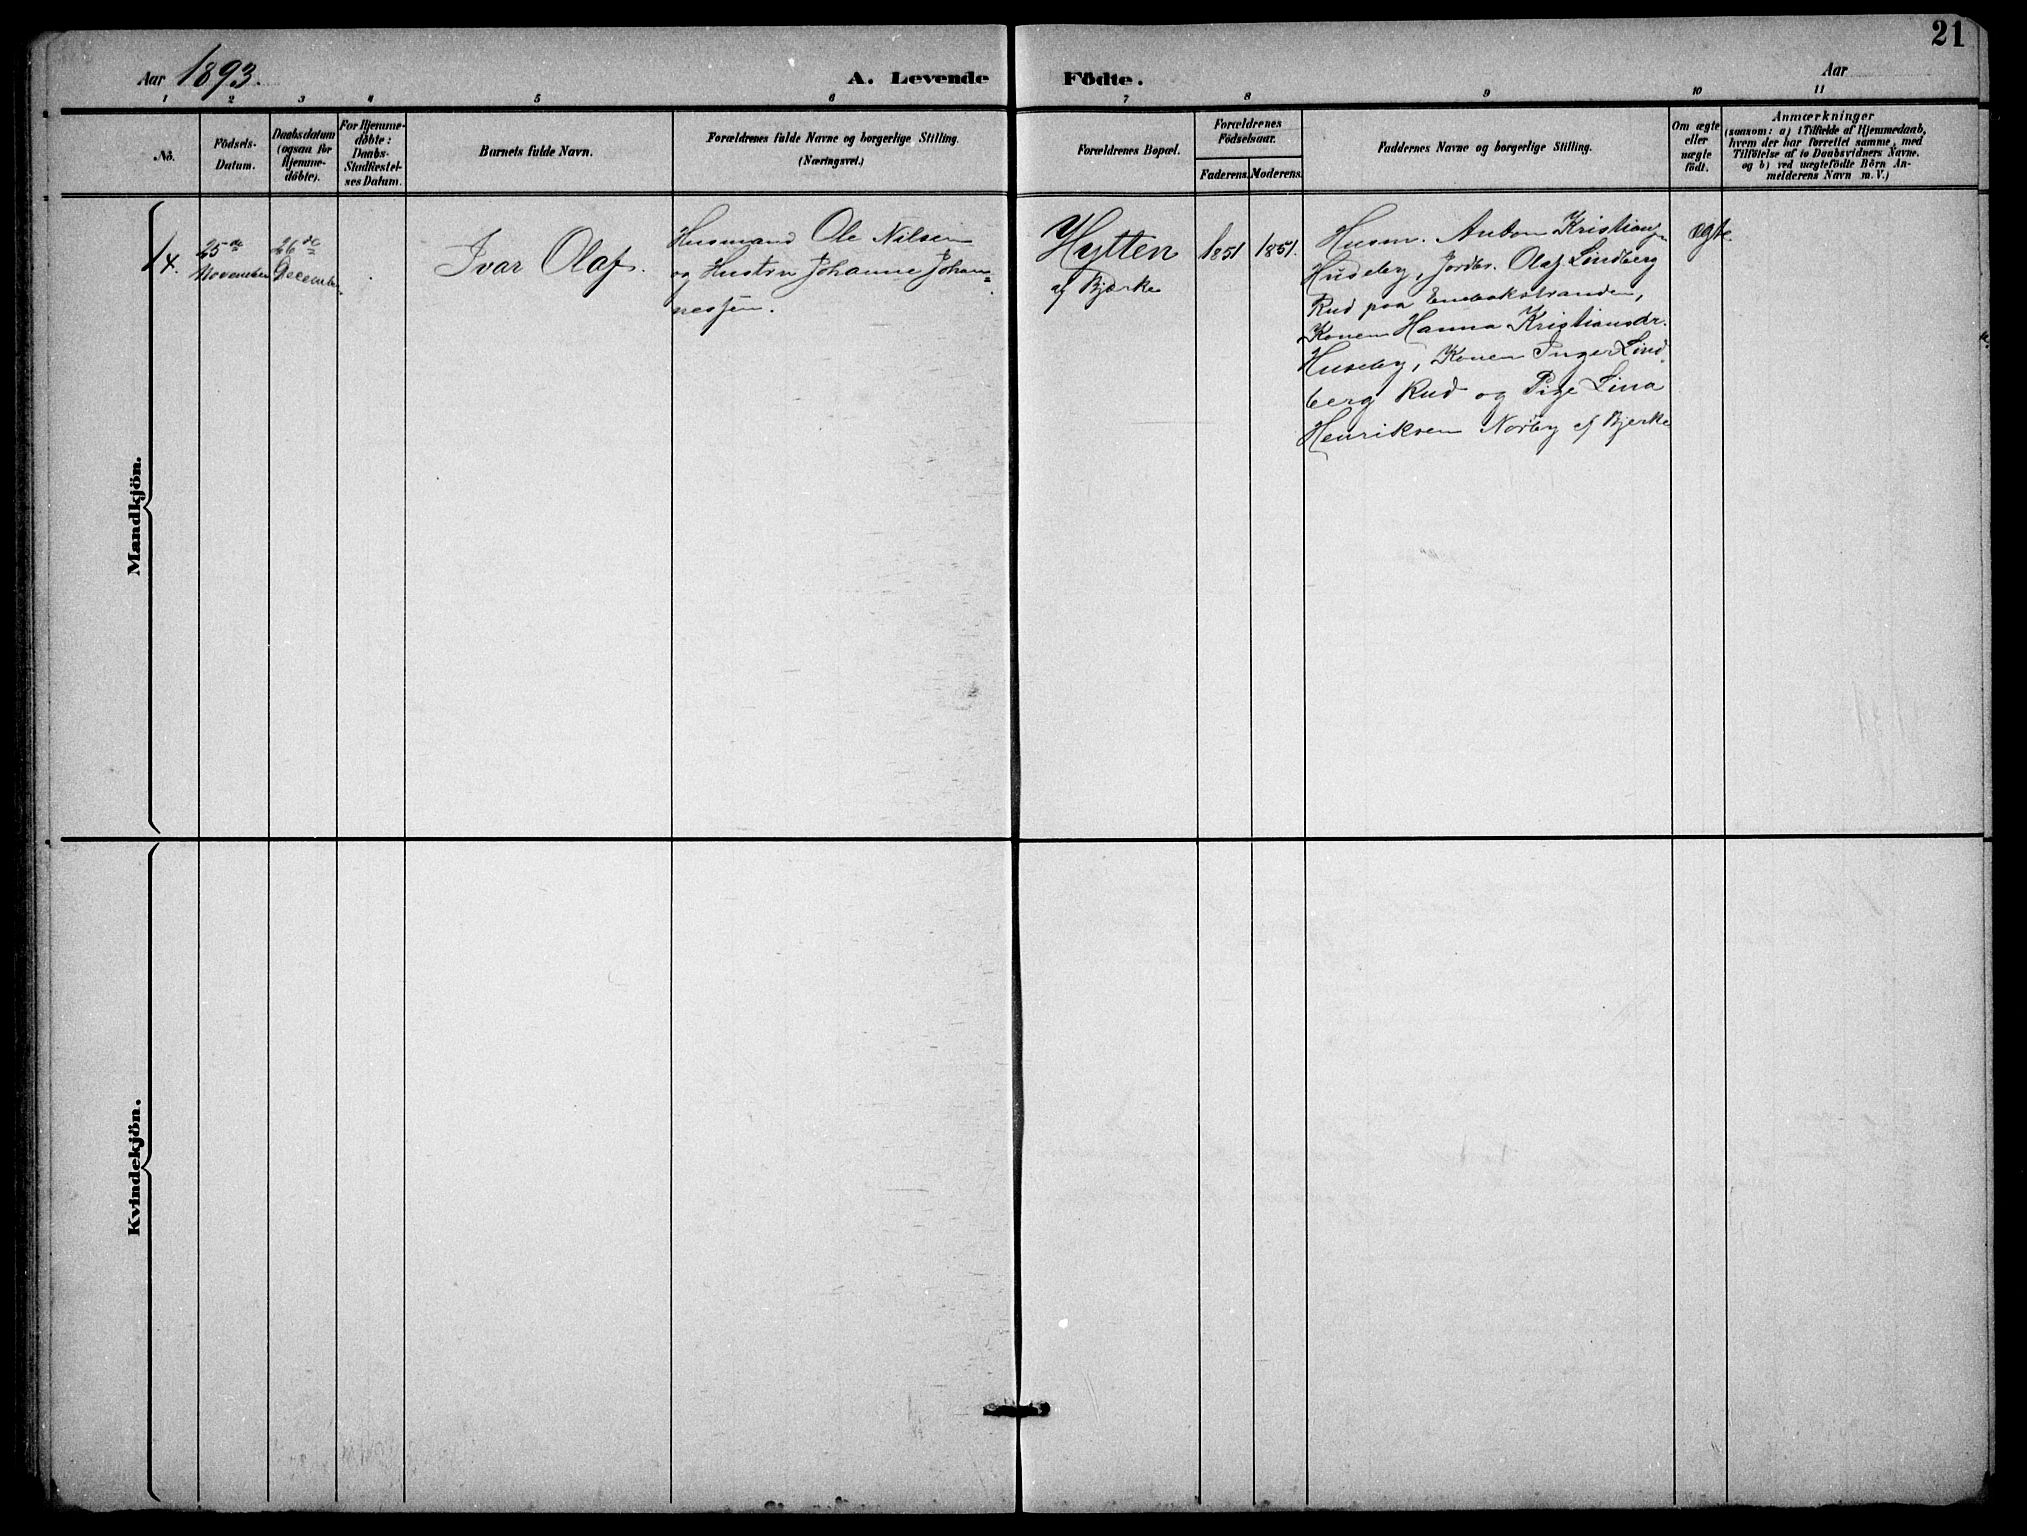 21
Aar 1893.
A. Levende Födte.
Aar
1 2 3 4 5 6 7 8 9 10 11
No.
Födsels-
Datum.
Daabsdatum
(ogsaa for
Hjemme-
döbte).
For Hjemme-
döbte:
Daabs-
Stadfæstel-
ses Datum.
Barnets fulde Navn.
Forældrenes fulde Navne og borgerlige Stilling.
(Næringsvei.)
Forældrenes Bopæl.
Forældrenes
Födselsaar.
Faderens. Moderens.
Faddernes Navne og borgerlige Stilling.
Om ægte
eller
uægte
födt.
Anmærkninger
(saasom: a) i Tilfælde af Hjemmedaab,
hvem der har forrettet samme, med
Tilföielse af to Daabsvidners Navne.
og b) ved uægtefödte Börn An-
melderens Navn m. V.)
Mandkjön.
14.
25de
November
26de
December
Ivar Olaf.
Husmand Ole Nilsen
og Hustru Johanne Johan-
nessen.
Hytten
af Bjerke
1851
1851.
Husm. Anton Kristians-
Huseby, Jordbr. Olaf Lindberg
Rud paa Enebakstranden,
Konen Hanna Kristiansdr.
Huseby, Konen Inger Lind-
berg Rud og Pige Lina
Henriksen Norby af Bjerke
ægte.
Kvindekjön.